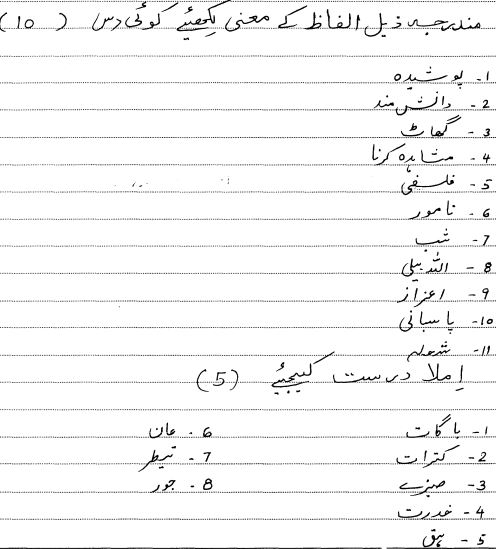 مندرجہ ذیل الفاظ کے معنی لکھئیے کوئی دس ( 10 )
1- پوشیدہ
2- دانش مند
3- گھاٹ
4- مشاہدہ کرنا
5- فلسفی
6- نامور
7- شب
8- اللہ بیلی
9- اعزاز
10- پاسبانی
11- شعولہ
اِملا درست کیجیئے (5)
1- باگات 6- عان
2- کترات 7- تیطر
3- صبزے 8- جور
4- غدرت
5- ہق